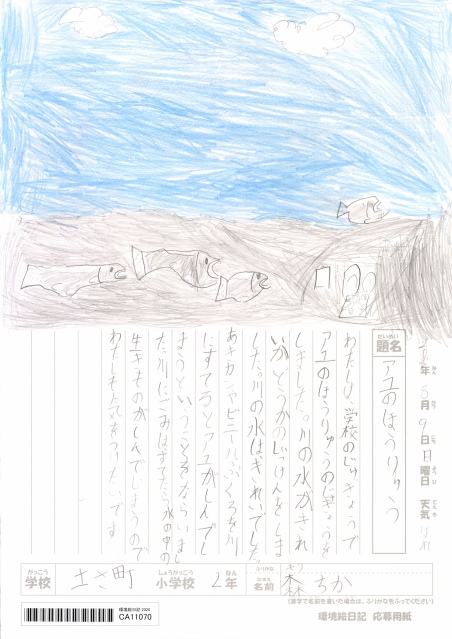 年 月 9日 日曜日 天気 はれ
題名 アユのほうりゅう
わたしは、学校のじゅぎょうで
アユのほうりゅうのじぎょうを
しました。川の水がきれ
いかどうかのじっけんをしま
した。川の水は、きれいでした。
あきカンやビニールぶくろを川
にすてるとアユがしんでし
まうということをならいまし
た。川にごみをすてたら、水の中の
生きものがしんでしまうので
わたしも気をつけたいです
学校 土さ町 小学校 2年 名前 森 ちか
(漢字で名前を書いた場合は、ふりがなをふってください)
環境絵日記 2026
CA11070
環境絵日記 応募用紙